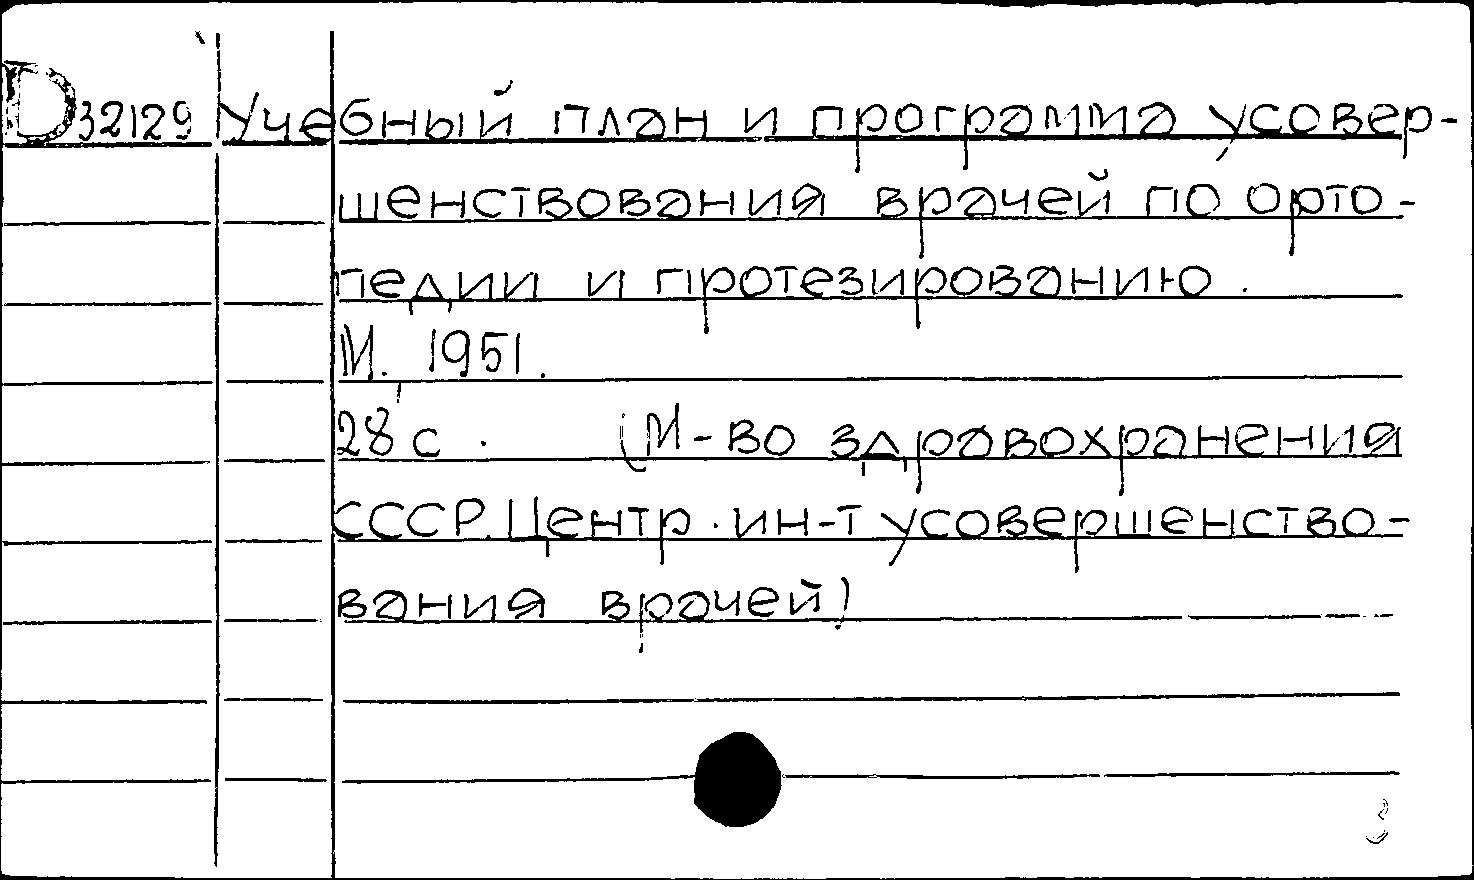 D32129 Учебный план и программа усовер-
шенствования врачей по орто-
педии и протезированию.
М. 1951.
28 с. (М-во здравохранения
СССР. Центр. ин-т усовершенство-
вания врачей)